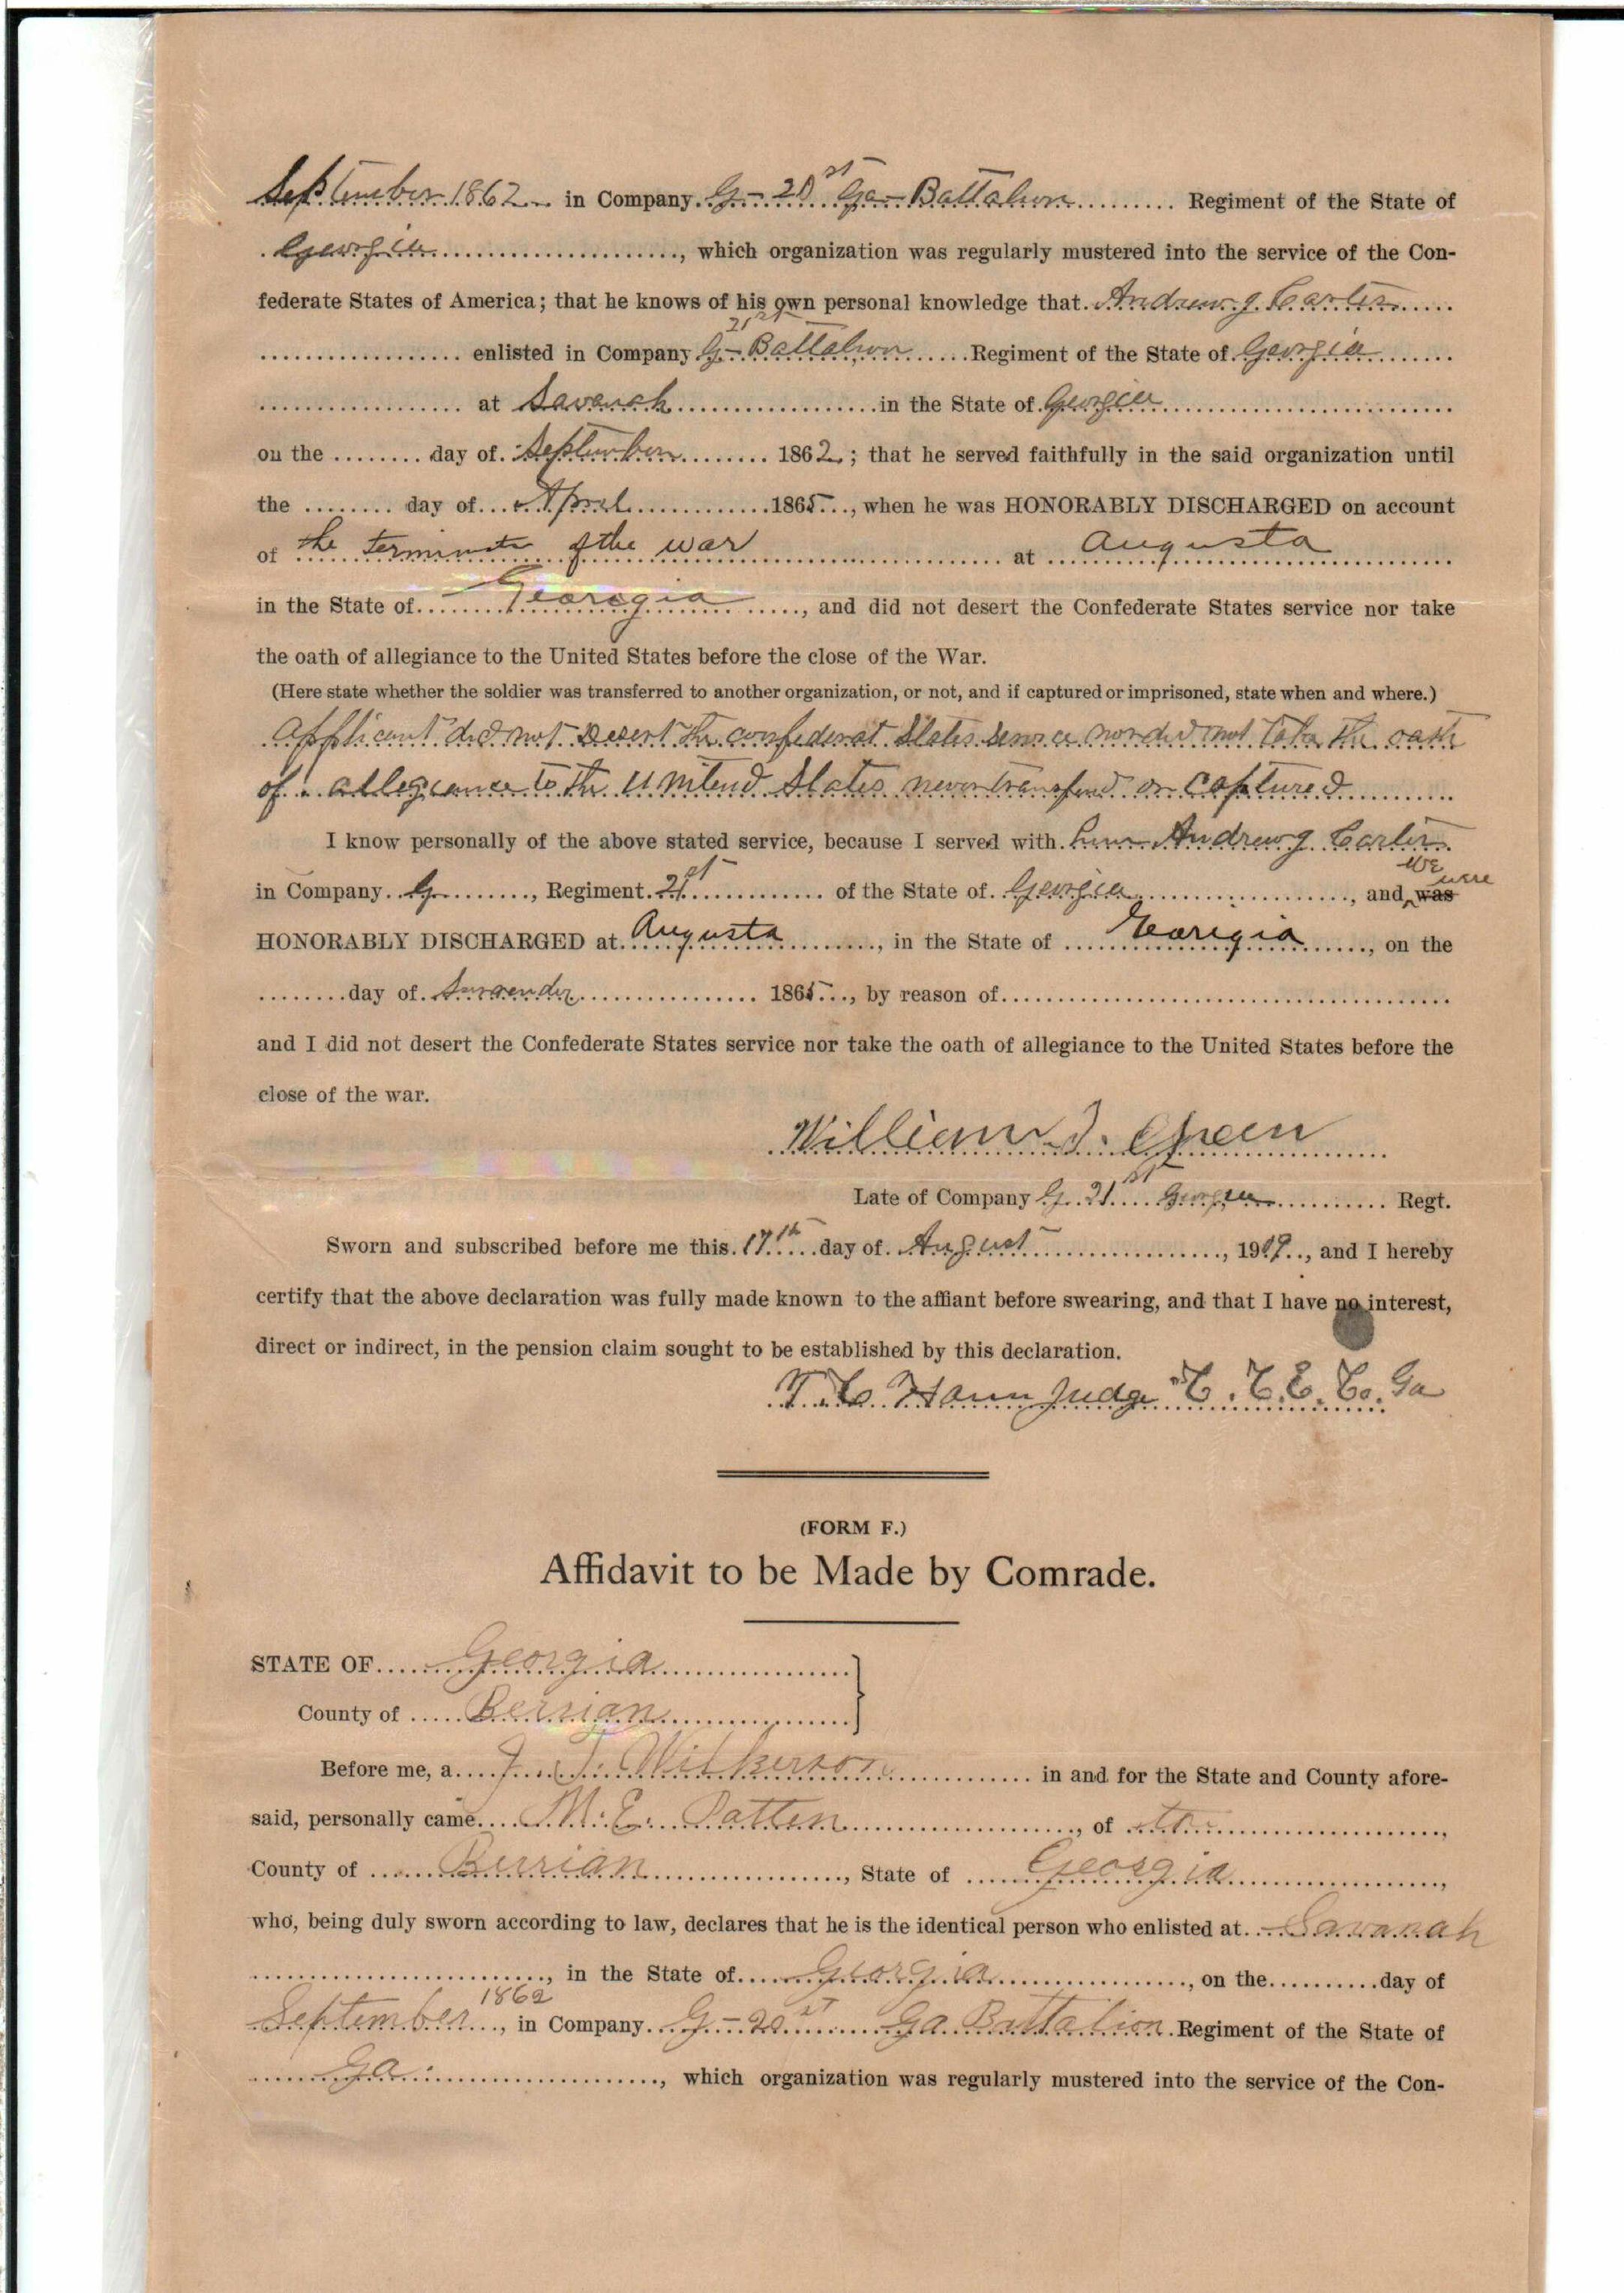 September 1862 in Company G - 20st Ga - Battalion Regiment of the State of
Georgia, which organization was regularly mustered into the service of the Con-
federate States of America; that he knows of his own personal knowledge that Andrew J. Carter
21st
enlisted in Company G - Battalion Regiment of the State of Georgia
at Savanah in the State of Georgia
on the day of September 1862; that he served faithfully in the said organization until
the day of April 1865, when he was HONORABLY DISCHARGED on account
of the terminate of the war at Augusta
in the State of Georgia, and did not desert the Confederate States service nor take
the oath of allegiance to the United States before the close of the War.
(Here state whether the soldier was transferred to another organization, or not, and if captured or imprisoned, state when and where.)
Applicant did not desert the confederat States service nor did not take the oath
of allegiance to the United States never transferd or captured
I know personally of the above stated service, because I served with him Andrew J. Carter
we were
in Company G, Regiment 21st of the State of Georgia, and was
HONORABLY DISCHARGED at Augusta, in the State of Georigia, on the
day of Surrender 1865, by reason of
and I did not desert the Confederate States service nor take the oath of allegiance to the United States before the
close of the war.
William J.
Late of Company G. 21st Georgia Regt.
Sworn and subscribed before me this 17th day of August, 1919, and I hereby
certify that the above declaration was fully made known to the affiant before swearing, and that I have no interest,
direct or indirect, in the pension claim sought to be established by this declaration.
Judge Co. Ga
(FORM F.)
Affidavit to be Made by Comrade.
STATE OF Georgia
County of Berrian
Before me, a J. J. Wilkerson in and for the State and County afore-
said, personally came M. E. Patten, of
County of Berrian, State of Georgia,
who, being duly sworn according to law, declares that he is the identical person who enlisted at Savanah
, in the State of Georgia, on the day of
1862
September, in Company G - 20st Ga Battalion Regiment of the State of
Ga., which organization was regularly mustered into the service of the Con-